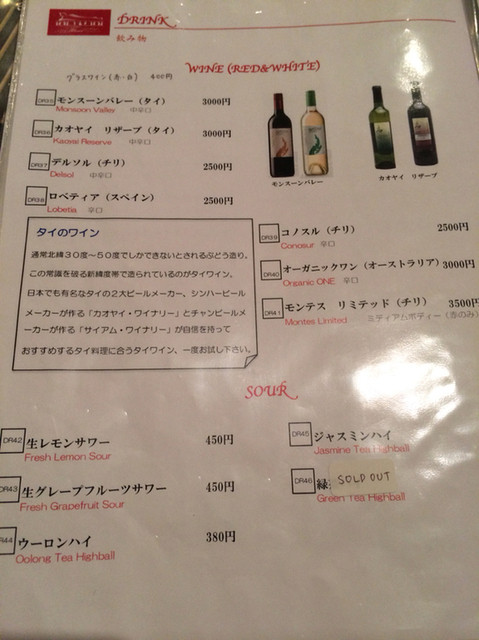 DRINK
飲み物
WINE (RED&WHITE)
グラスワイン (赤・白) 400円
DR35 モンスーンバレー (タイ) 3000円
Monsoon Valley 中辛口
DR36 カオヤイ リザーブ (タイ) 3000円
Kaoyai Reserve 中辛口
DR37 デルソル (チリ) 2500円
Delsol 中辛口
DR38 ロベティア (スペイン) 2500円
Lobetia 辛口
モンスーンバレー
カオヤイ リザーブ
タイのワイン
通常北緯30度~50度でしかできないとされるぶどう造り、
この常識を破る新緯度帯で造られているのがタイワイン、
日本でも有名なタイの2大ビールメーカー、シンハービール
メーカーが作る「カオヤイ・ワイナリー」とチャンビールメ
ーカーが作る「サイアム・ワイナリー」が自信を持って
おすすめするタイ料理に合うタイワイン、一度お試し下さい。
DR39 コノスル (チリ) 2500円
Conosur 辛口
DR40 オーガニックワン (オーストラリア) 3000円
Organic ONE 辛口
DR41 モンテス リミテッド (チリ) 3500円
Montes Limited ミディアムボディー (赤のみ)
SOUR
DR42 生レモンサワー 450円
Fresh Lemon Sour
DR43 生グレープフルーツサワー 450円
Fresh Grapefruit Sour
R44 ウーロンハイ 380円
Oolong Tea Highball
DR45 ジャスミンハイ
Jasmine Tea Highball
DR46 緑 SOLD OUT
Green Tea Highball